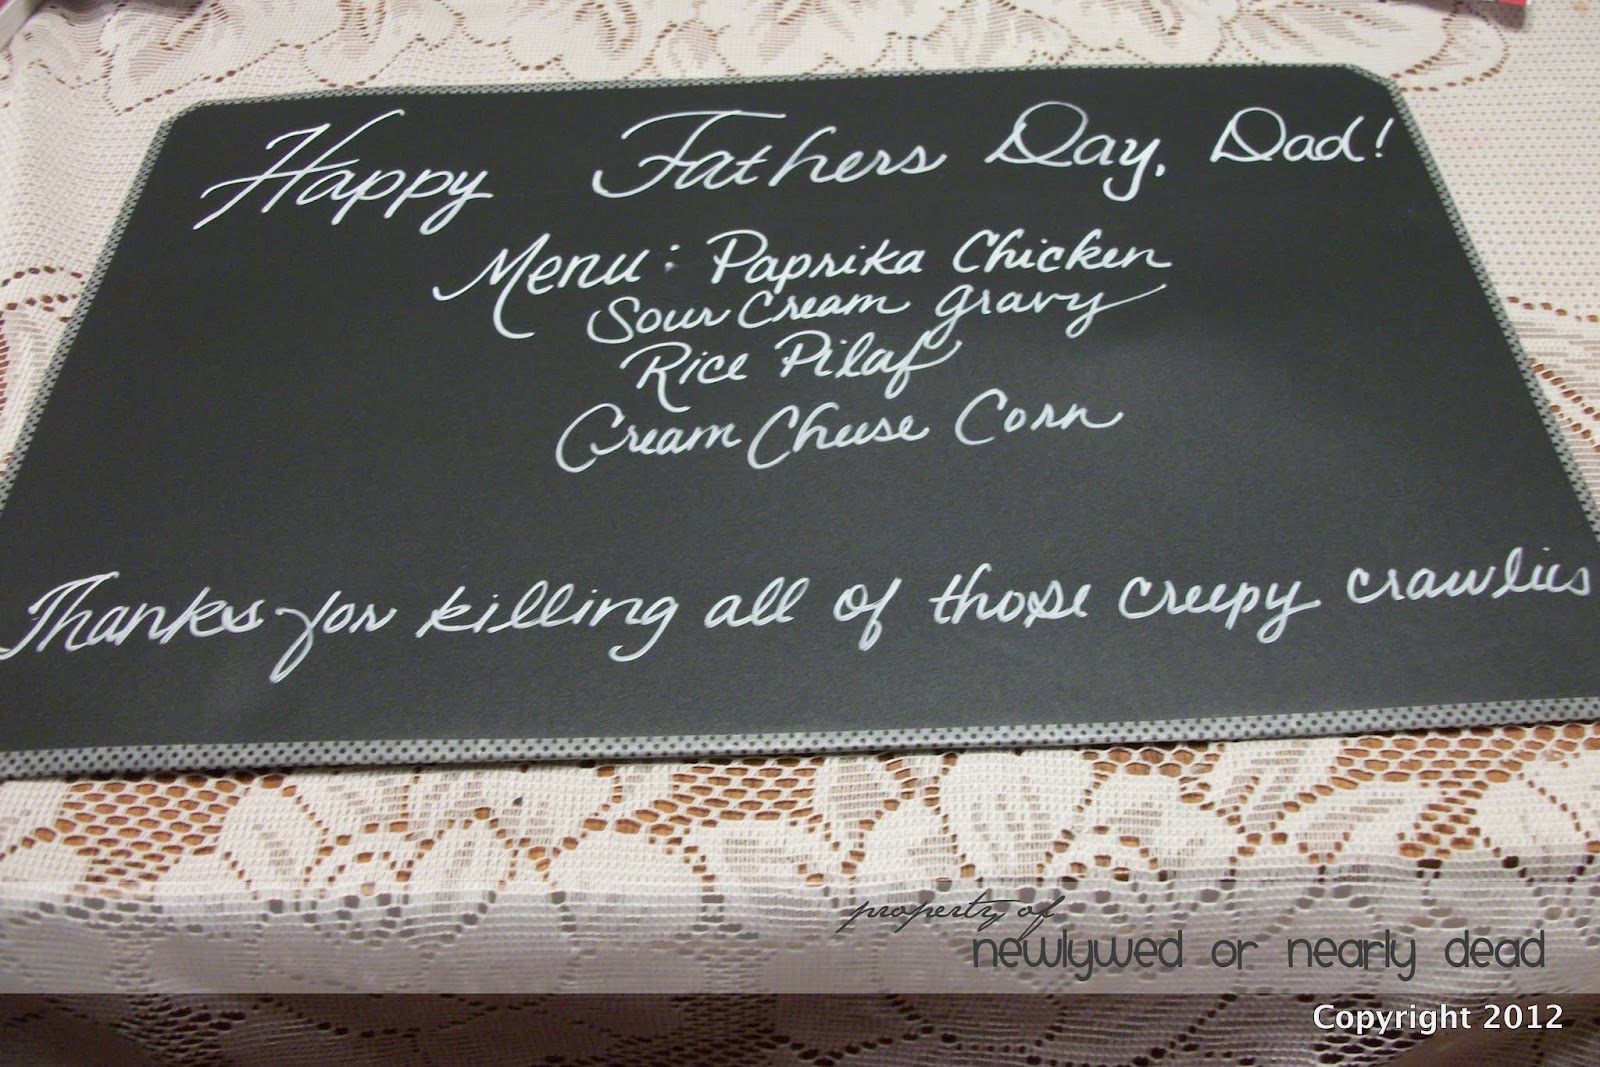 Happy Fathers Day, Dad!
Menu: Paprika Chicken
Sour Cream gravy
Rice Pilaf
Cream Cheese Corn
Thanks for killing all of those creepy crawlies
property of
newlywed or nearly dead
Copyright 2012